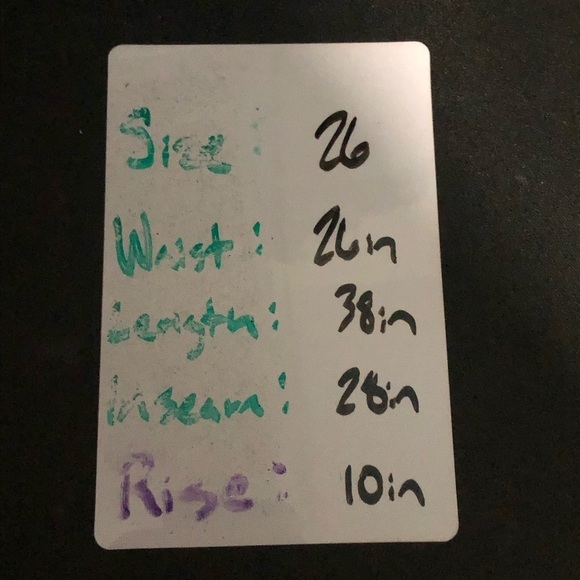 Size: 26
Waist: 26in
Length: 38in
Inseam: 28in
Rise: 10in